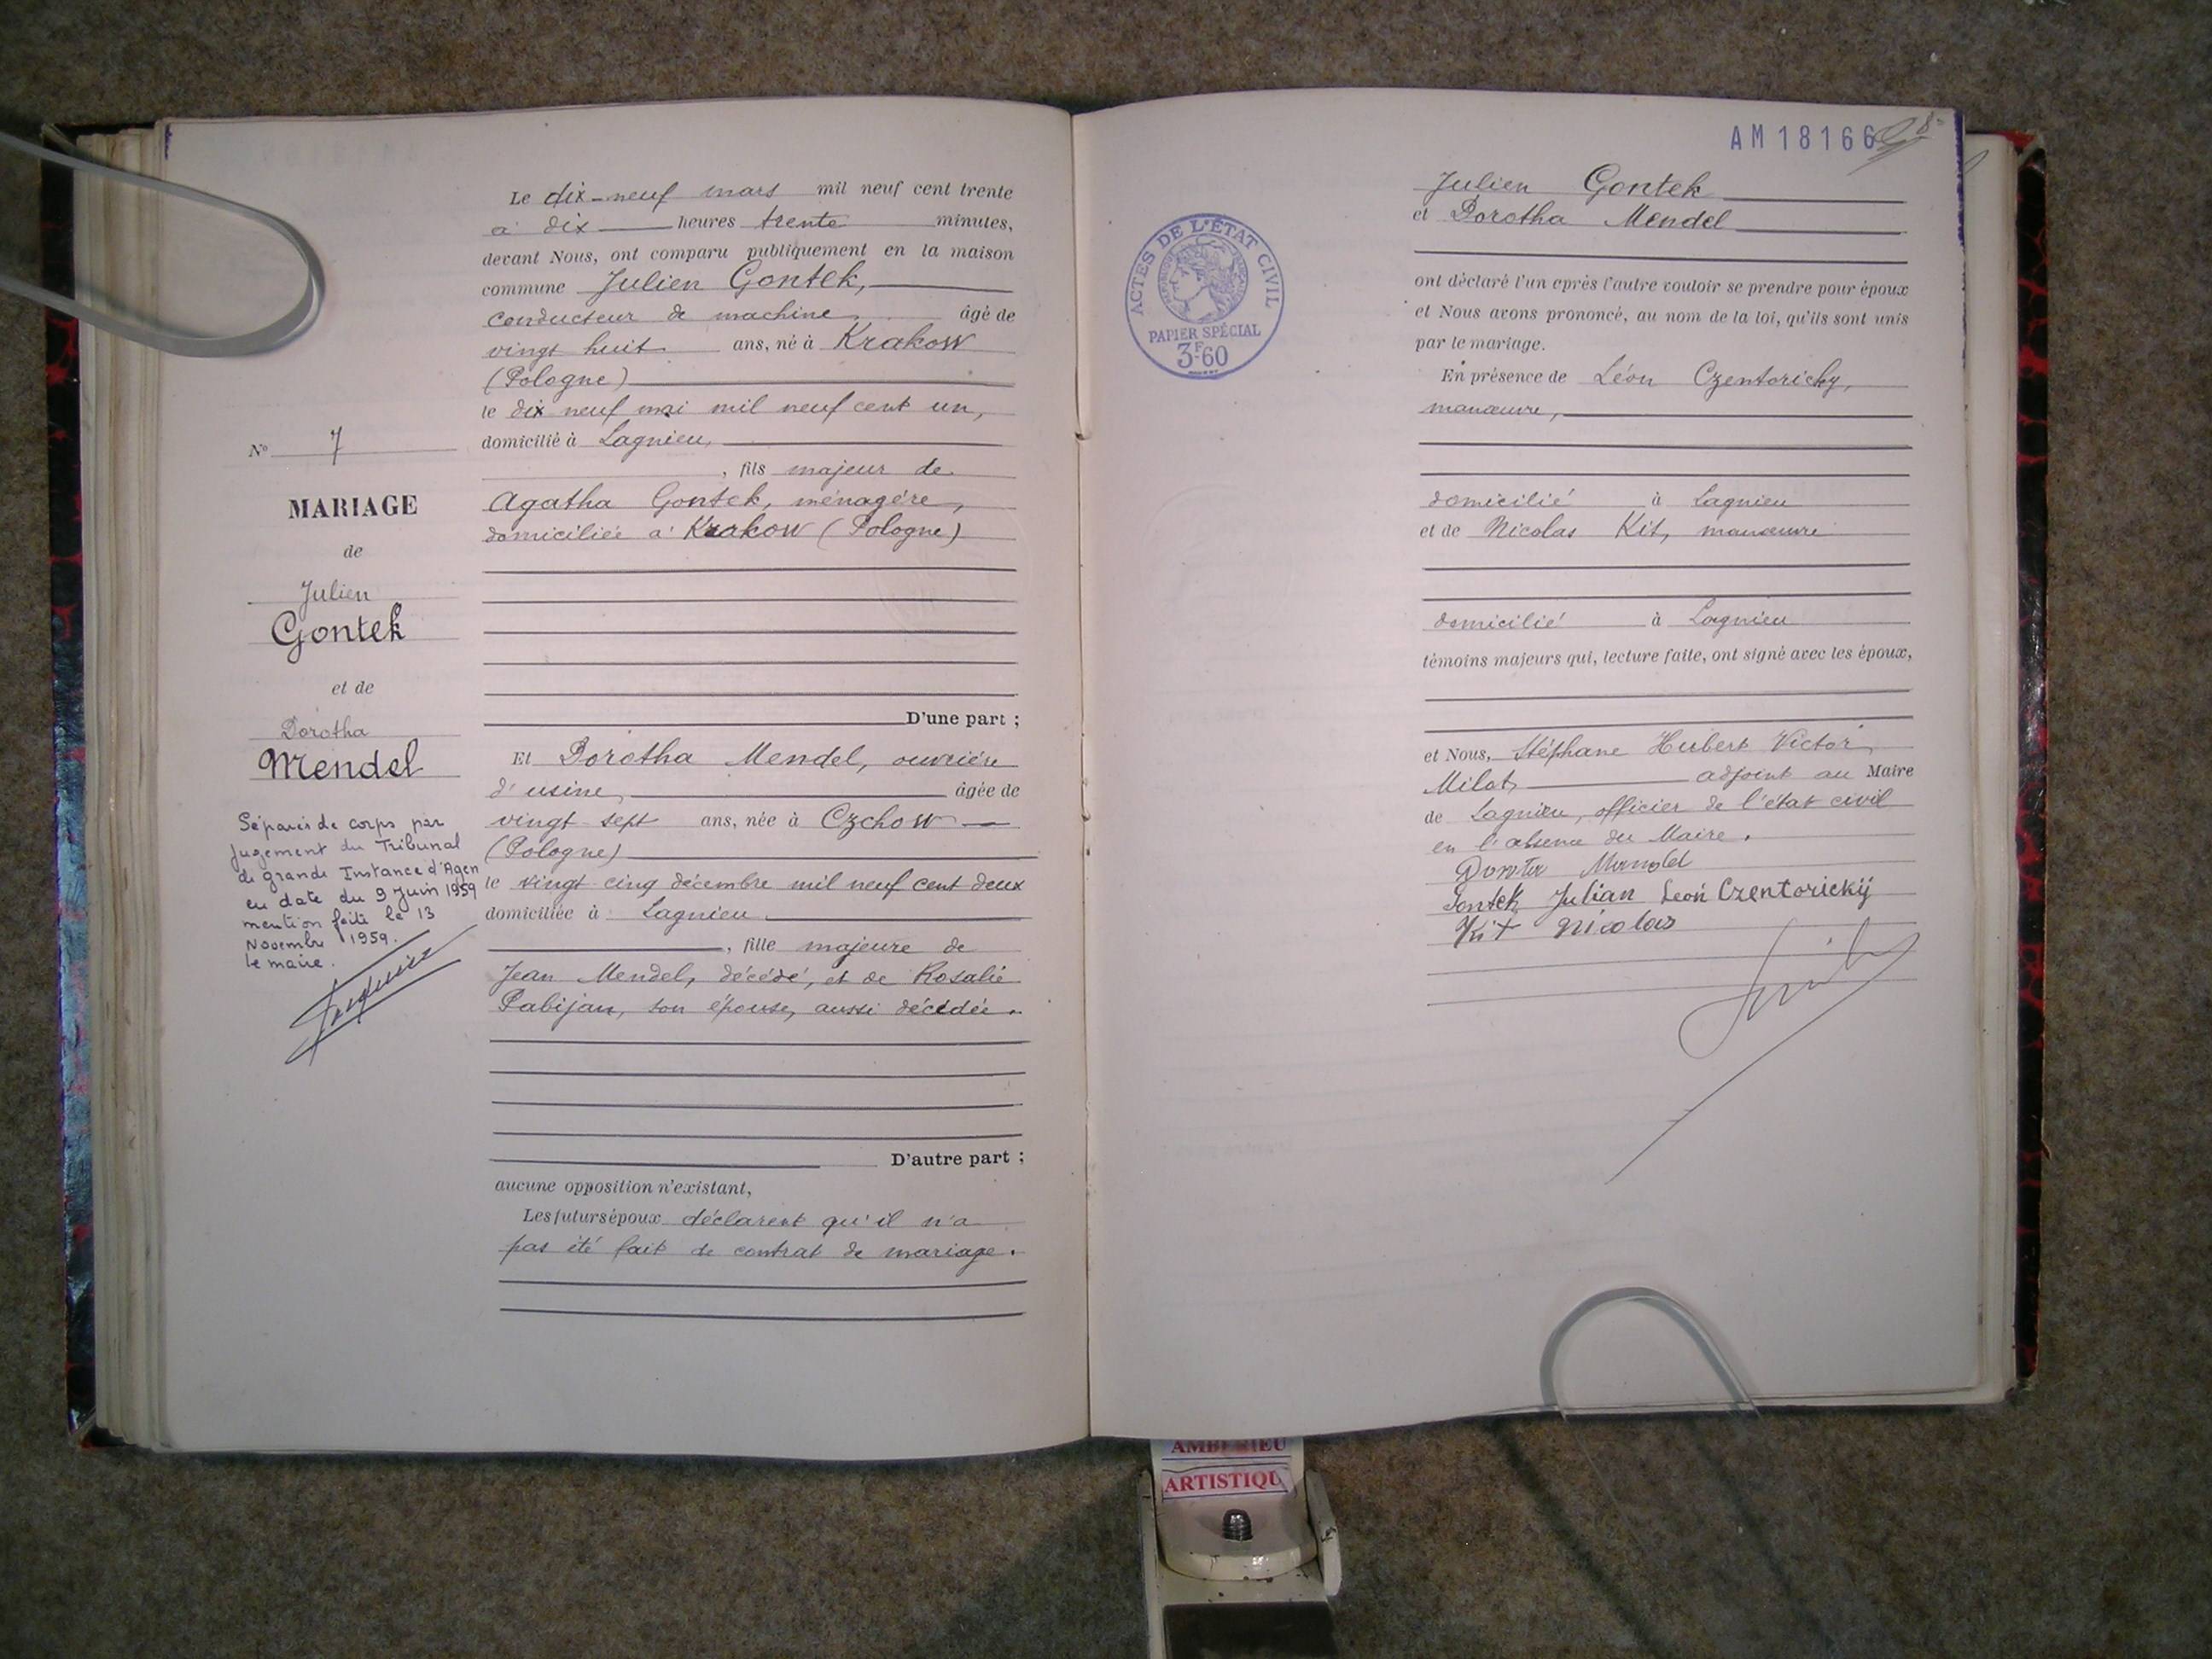 N° 7
MARIAGE
de
Julien
Gontek
et de
Dorotha
Mendel
Séparés de corps par
jugement du Tribunal
de grande Instance d'Agen
en date du 9 Juin 1959
mention faite le 13
Novembre 1959.
le maire.
Le dix-neuf mars mil neuf cent trente
à dix heures trente minutes,
devant Nous, ont comparu publiquement en la maison
commune Julien Gontek,
conducteur de machine, âgé de
vingt huit ans, né à Krakow
(Pologne)
le dix neuf mai mil neuf cent un,
domicilié à Lagnieu,
, fils majeur de
Agatha Gontek, ménagère,
domiciliée à Krakow (Pologne)
D'une part ;
Et Dorotha Mendel, ouvrière
d'usine, âgée de
vingt sept ans, née à Czchow
(Pologne)
le vingt cinq décembre mil neuf cent deux
domiciliée à Lagnieu
, fille majeure de
Jean Mendel, décédé, et de Rosalie
Pabijan, son épouse, aussi décédée.
D'autre part ;
aucune opposition n'existant,
Les futurs époux déclarent qu'il n'a
pas été fait de contrat de mariage.
AM 18166
ACTES DE L'ÉTAT CIVIL
PAPIER SPÉCIAL
3F.60
Julien Gontek
et Dorotha Mendel
ont déclaré l'un après l'autre vouloir se prendre pour époux
et Nous avons prononcé, au nom de la loi, qu'ils sont unis
par le mariage.
En présence de Léon Czentoricky,
manœuvre,
domicilié à Lagnieu
et de Nicolas Kit, manœuvre
domicilié à Lagnieu
témoins majeurs qui, lecture faite, ont signé avec les époux,
et Nous, Stéphane Hubert Victor
Milot, adjoint au Maire
de Lagnieu, officier de l'état civil
en l'absence du Maire.
Gontek Julian Leon Czentorickij
Kit Nicolas
ARTISTIQU